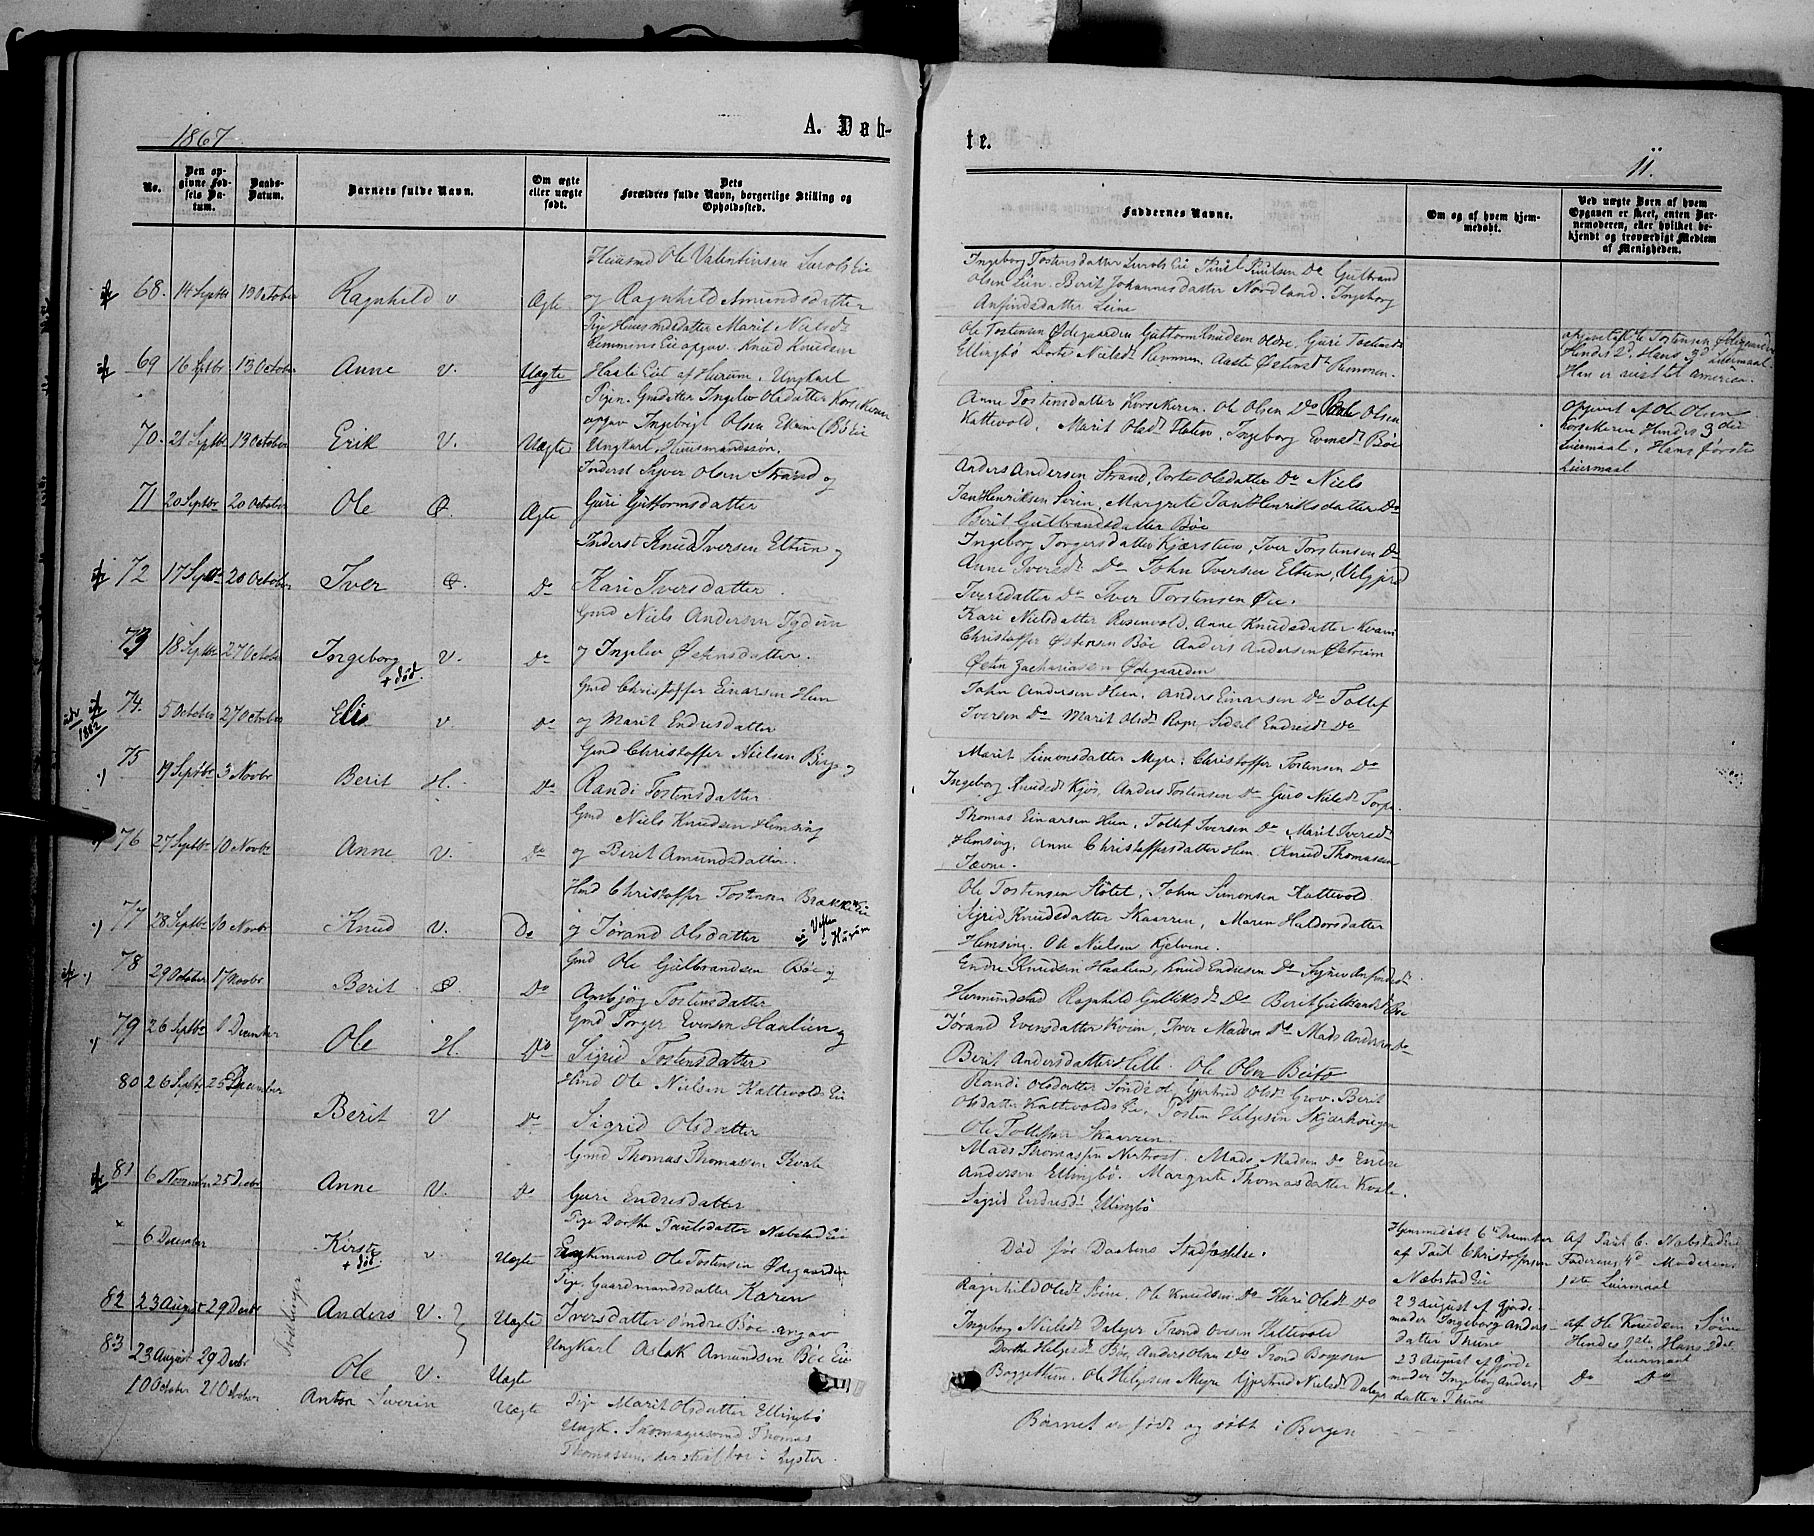 1867.
A. Døb-
te.
11.
No.
Den opgivne Fødsels Datum.
Daabs-Datum.
Barnets fulde Navn.
Om ægte eller uægte født.
Dets Forældres fulde Navn, borgerlige Stilling og Opholdssted.
Faddernes Navne.
Om og af hvem hjemmedøbt.
Ved uægte Børn af hvem Opgaven er skeet, enten Barnemoderen, eller hvilket bekjendt og troværdigt Medlem af Menigheden.
68. 14 Septbr 13 October Ragnhild v Ægte
Huusmd Ole Valentinsen
og Ragnhild Amundsdatter
Ingeborg Tostensdatter Paul Paulsen Do Gulbrand
Olsen Lien. Berit Johannesdatter Nordland. Ingeborg
Anfindsdatter Leine
69 16 Septbr 13 October Anne v. Uægte
Pige Huusmdsdatter Marit Nielsd.
Remmens Eie opgav. Knud Knudsen
Haale Eie af Hurum. Ungkarl
Ole Tostensen Ødegaarden Guttorm Knudsen Guri Tostensd.
Ellingbö Dorte Nielsd. Remmen. Aaste Østensd. Remmen.
Tostensen Ødegaarden
Hendes 2d Hans 3d Leiermaal.
Han er reist til america.
70. 21 Septbr 13 October Erik V. Uægte
Pigen. Gmdatter Ingelev Olsdatter Kors
opgav Ingebrigt Olsen Ekern (Bö Eie
Ungkarl, Huusmandssøn.
Anne Tostensdatter Ole Olsen Do Olsen
Kattevold. Marit Olsd. Floten, Ingeborg Evensd. Böe
Opgivet af Ole Olsen
Hendes 3die
Leiermaal. Hans første
Leiermaal
71 20 Septbr 20 October Ole Ø. Ægte
Inderst Syver Olsen Strand og
Guri Guttormsdatter
Anders Andersen Strand, Dorte Olsdatter Do Niels
Janhenriksen Margrete Janhenriksdatter Do
Berit Gulbrandsdatter Böe
72 17 Septbr 20 October Iver Ø. Do
Inderst Knud Iversen Eltun og
Kari Iversdatter.
Ingeborg Torgersdatter Kjærstein, Iver Torstensen Do
Anne Iversd. Do John Iversen Eltun, Velgjerd
Iversdatter Do Iver Torstensen Øie.
73 18 Septbr 27 October Ingeborg V. Do
+ död.
Gmd Niels Andersen
og Ingelev Østensdatter.
Kari Nielsdatter Rosenvold. Anne Knudsdatter Kvam
Christoffer Østensen Böe Anders Andersen Østrem
Østen Zachariasen Ødegaarden
74. 5 October 27 October Elis v Do
Gmd Christoffer Einarsen Hun
og Marit Endresdatter
John Andersen Hun. Anders Einarsen Do Tollef
Iversen Do Marit Olsd. Rogn, Sidsel Endresd. Do
75 19 Septbr 3 Novbr Berit H. Do
Gmd Christoffer Nielsen Berge og
Randi Tostensdatter
Marit Simonsdatter Myre. Christoffer Tostensen Do
Ingeborg Knudsd. Kjös, Anders Tostensen Do Guro Nielsd. Torpe
76 27 Septbr 10 Novbr Anne V. Do
Gmd Niels Knudsen Hemsing
og Berit Amundsdatter.
Thomas Einarsen Hun, Tollef Iversen Do Marit Iversd.
Hemsing, Anne Christoffersdatter Hun. Knud Thomassen
Jævne.
77 28 Septbr 10 Novbr Knud V. Do
Hmd Christoffer Tostensen Brække Eie
og Jørand Olsdatter
i Hurum
Ole Tostensen Slötet, John Simonsen Kattevold
Sigrid Knudsdatter Skaarren, Maren Haldorsdatter
Hemsing. Ole Nielsen Kjelvene.
78 29 October 17 Novbr Berit Ø. Do
Gmd Ole Gulbrandsen Böe og
Anbjörg Tostensdatter
Endre Knudsen Haalien, Knud Endresen Do
Hermundstad Ragnhild Gulliksd. Do Berit Gulbrandsd. Böe
79 26 Septbr 1 December Ole H. Do
Gmd Torger Evensen Haalien og
Sigrid Tostensdatter
Jörand Evensdatter Kvien, Iver Madsen Do Mads Andersen Do
Berit Andersdatter Helle. Ole Olsen Beito
80 26 Septbr 25 December Berit V Do
Hmd Ole Nielsen Kattevolds Eie
Sigrid Olsdatter
Randi Olsdatter Gjertrud Olsd. Grov. Berit
Olsdatter Kattevolds Eie. Tosten Helgesen
Ole Tollefsen Skaarren.
81 6 November 25 Decbr Anne V. Do
Gmd Thomas Thomassen Kvale
Guri Endresdatter
Mads Thomassen Nertrost. Mads Madsen Do Endre
Andersen Ellingbö. Margrete Thomasdatter Kvale.
Sigrid Endresd. Ellingbö
6 December Kirsti v Uægte
+ död.
Pige Dorthe Paulsdatter Næbstad Eie
Enkemand Ole Tostensen Ødegaarden
Död för Daabens Stadfæstelse.
Hjemmedöbt 6te December
af Paul Christoffersen
Næbstad Eie
Af Paul C. Næbstad Eie
Faderens 4de Moderens
1ste Leiermaal
Tvillinger
82 23 August 29 Decbr Anders V. Uægte
Pige Gaardmandsdatter Karen
Iversdatter Øndre Böe angav
Ungkarl Aslak Amundsen Böe Eie
Ragnhild Olsd. Ole Knudsen Do Kari Olsd. Do
Ingeborg Nielsd. Dalager Trond Kattevold
23 August af Gjordemoder Ingeborg Andersdatter Thune
af Ole Knudsen
Hendes 1ste Hans 2det
Leiermaal
83 23 August 29 Decbr Ole V. Uægte
Dorthe Helgesd. Böe, Anders Olsen Do Trond
Ole Helgesen Myre Gjertrud Nielsd. Dalager
23 August af Gjordemoder Ingeborg Andersdatter Thune
Do Do
10 October 21 October Anton Severin Uægte
Pige Marit Olsdatter Ellingbö
Ungk. Skomagersvend Thomas
Thomassen, der skal boe i Lyster.
Barnet er födt og döbt i Bergen